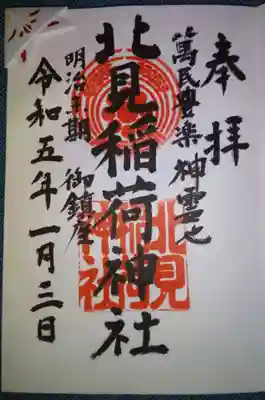 奉拝
萬民豊楽神霊也
北見稲荷神社
明治末期 御鎮座
令和五年一月三日